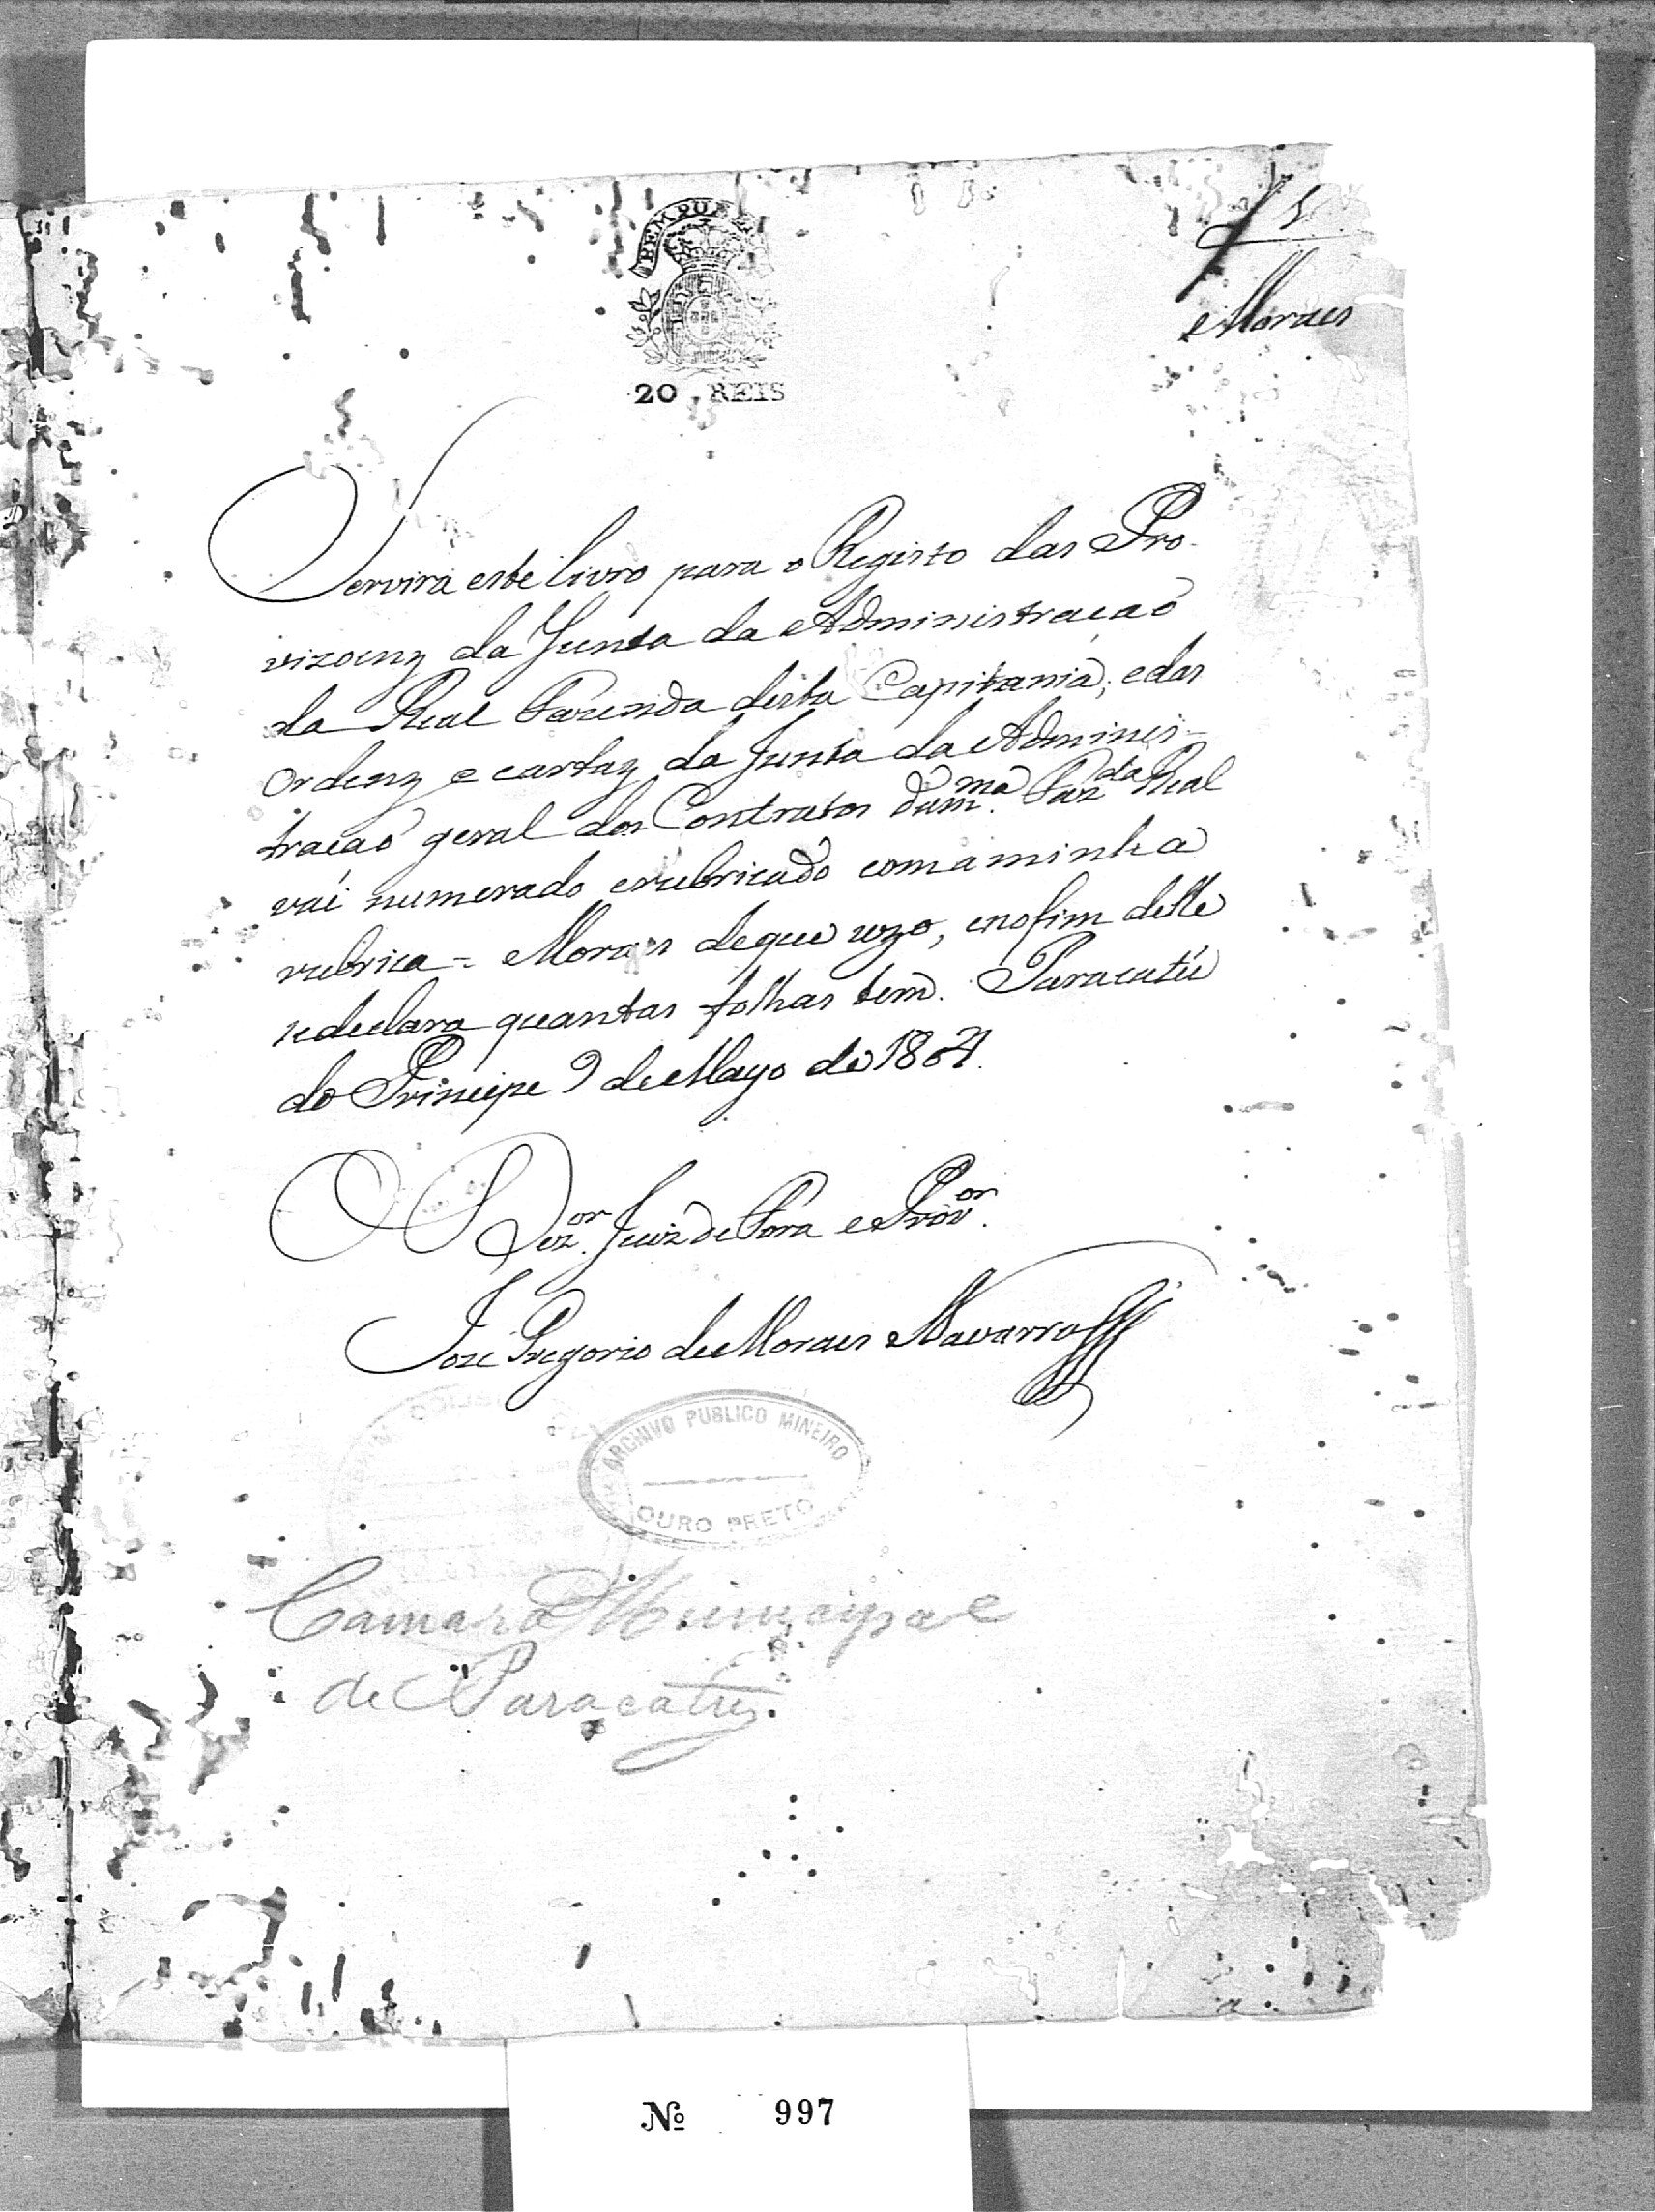 1
Moraes
20 REIS
Servirá este livro para o Registo das Pro-
vizoens da Junta da Administracaõ
da Real Fazenda desta Capitania, e das
Ordens e cartas da Junta da Adminis-
tracaõ geral dos Contratos da m.ma Faz.da Real
vai numerado erubricado comaminha
rubrica = Moraes deque uzo, enofim delle
sedeclara quantas folhas tem. Paracatú
do Principe 9 deMayo de 1804.
O Dez.or Juiz de Fora e Prov.or
Joze Gregorio deMoraes Navarro
ARCHIVO PUBLICO MINEIRO
OURO PRETO
Camara Municipal
de Paracatu
Nº 997